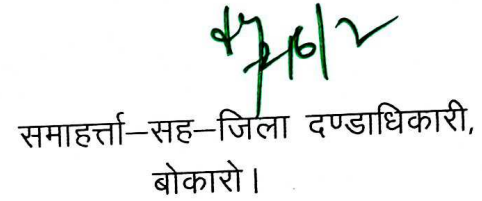 समाहर्त्ता–सह–जिला दण्डाधिकारी,
बोकारो।